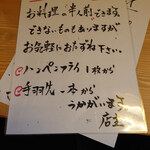 お料理の半人前できます。
できないものもありますが
お気軽におたずね下さい。
ハンペンフライ 1枚から
手羽先 一本から
うかがいます
店主